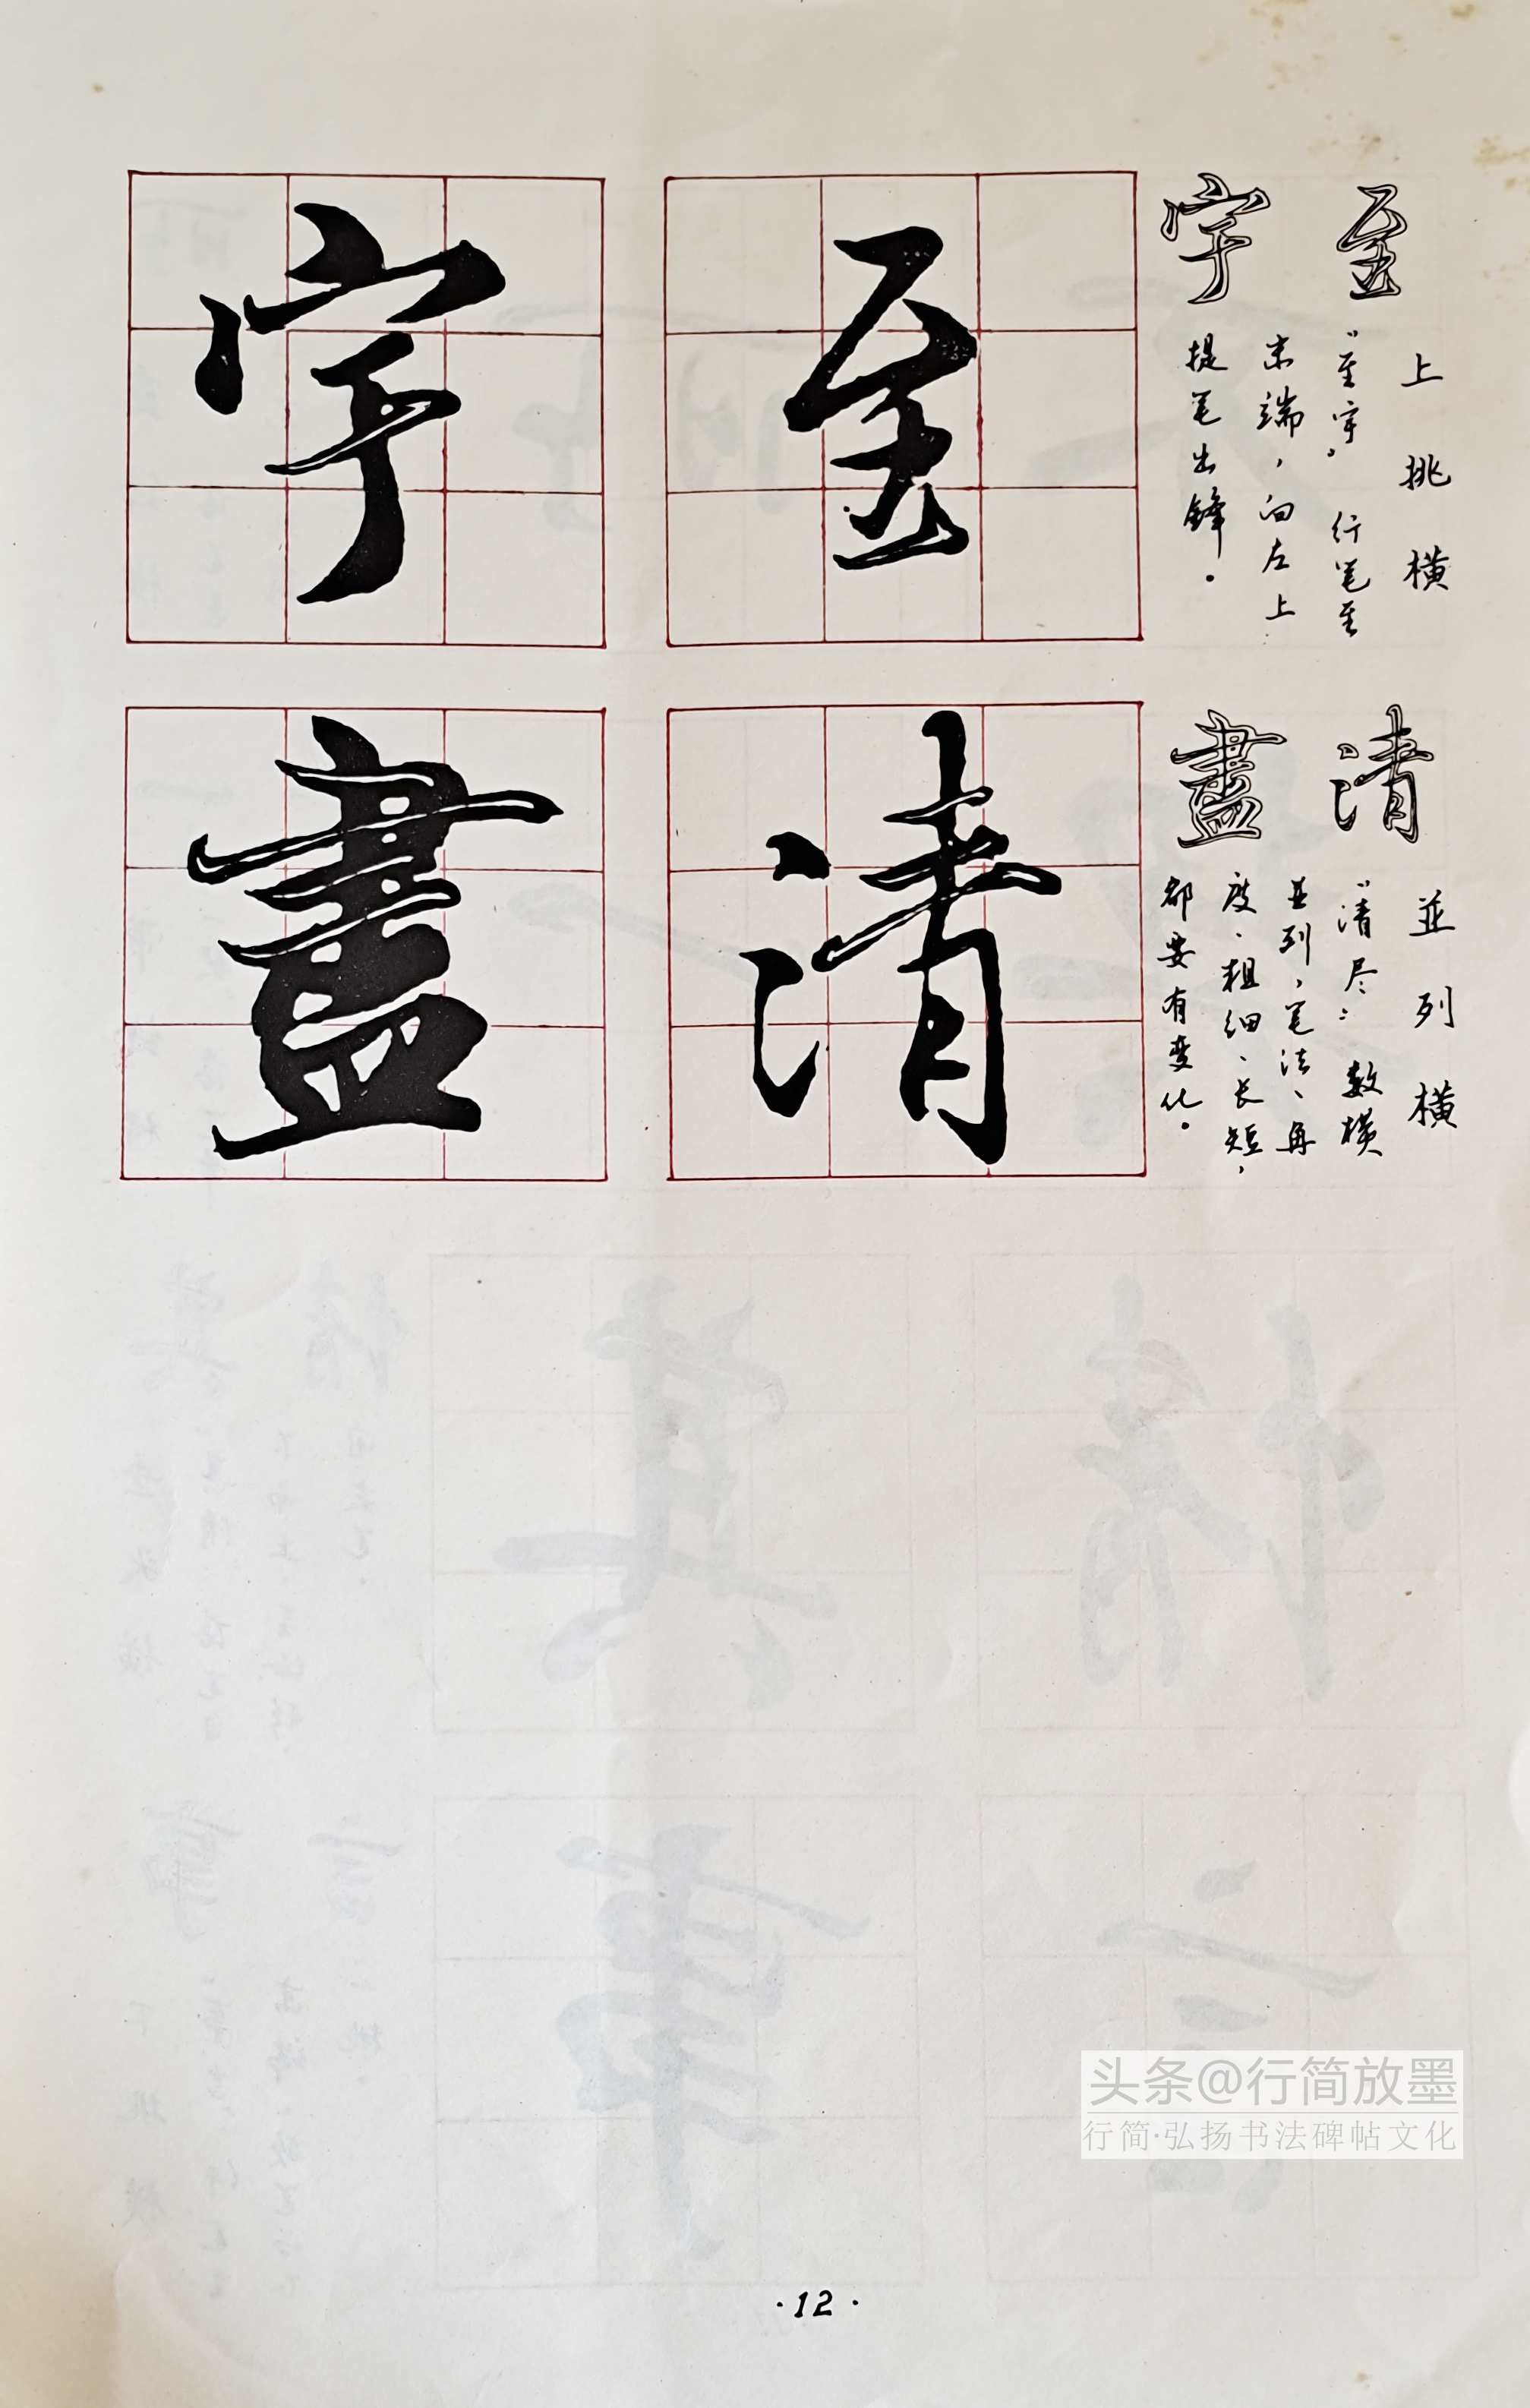 上挑横
至
“至宇”行笔至
末端，向左上
宇
提笔出锋。
至
宇
並列横
清
“清尽”数横
並列，笔法、角
度、粗细、长短，
盡
都要有变化。
清
盡
头条@行简放墨
行简·弘扬书法碑帖文化
·12·